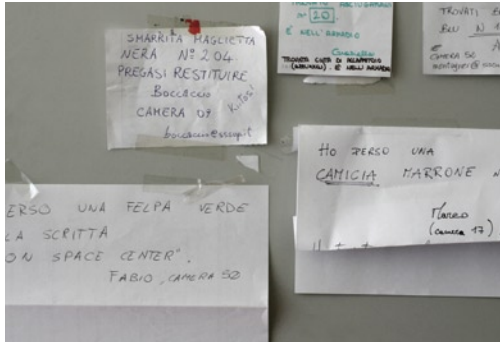 SMARRITA MAGLIETTA
NERA N° 204
PREGASI RESTITUIRE
Boccaccio
CAMERA 09
N° 20
È NELL'ARMADIO
TROVATI
BLU N
CAMERA 50
HO PERSO UNA
CAMICIA MARRONE N
Marco
(camera 17)
ERSO UNA FELPA VERDE
LA SCRITTA
ON SPACE CENTER".
FABIO, CAMERA 50